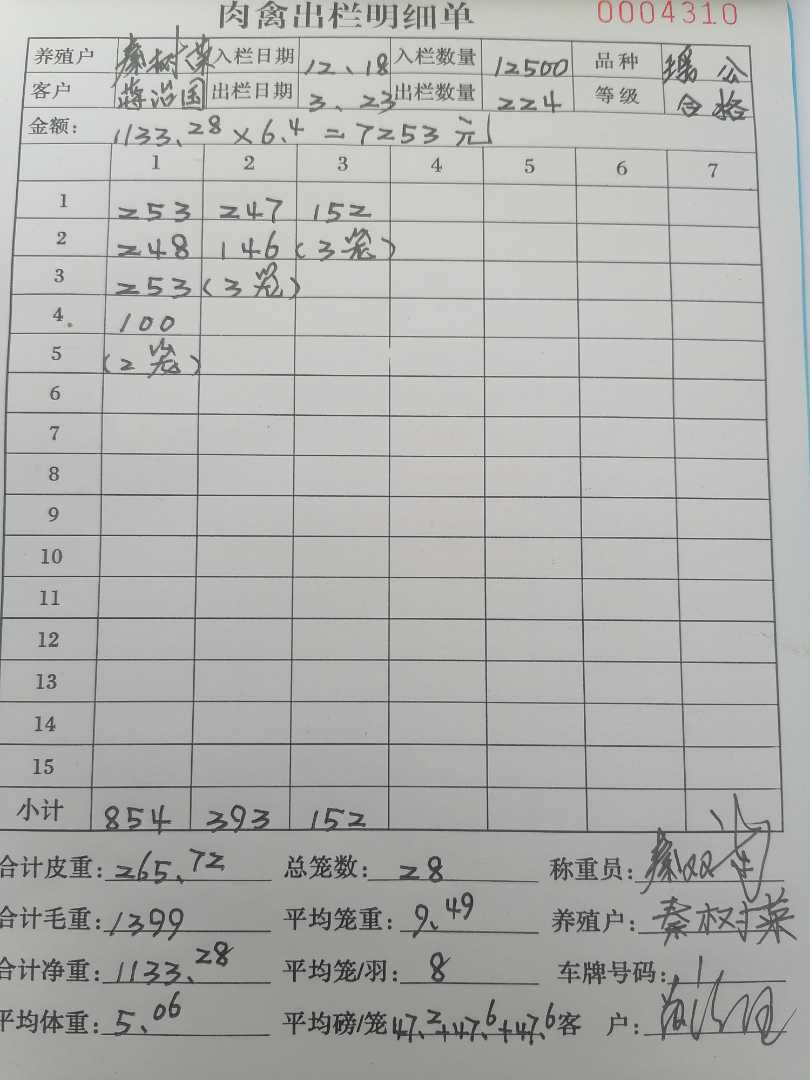 肉禽出栏明细单 0004310
养殖户 秦树荣 入栏日期 12、18 入栏数量 12500 品种 瑶公
客户 蒋治国 出栏日期 3、23 出栏数量 224 等级 合格
金额: 1133.28×6.4=7253元
1 2 3 4 5 6 7
1 253 247 152
2 248 146 (3笼)
3 253 (3笼)
4 100
5 (2笼)
6
7
8
9
10
11
12
13
14
15
小计 854 393 152
合计皮重: 265.72 总笼数: 28 称重员:
合计毛重: 1399 平均笼重: 9.49 养殖户: 秦树荣
合计净重: 1133.28 平均笼/羽: 8 车牌号码:
平均体重: 5.06 平均磅/笼 47.2+47.6+47.6 客 户: